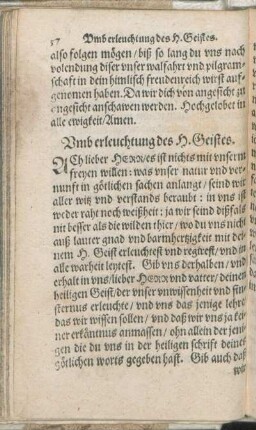 57 Vmb erleuchtung des H. Geistes.
also folgen mögen/ biß so lang du vns nach
volendung diser vnser walfahrt vnd pilgram-
schafft in dein himlisch freudenreich wirst auf-
genomen haben. Da wir dich von angesicht zu
angesicht anschawen werden. Hochgelobet in
alle ewigkeit/ Amen.
Vmb erleuchtung des H. Geistes.
ACh lieber HERR/ es ist nichts mit vnserm
freyen willen: was vnser natur vnd ver-
nunft in götlichen sachen anlangt/ seind wir
aller witz vnd verstands beraubt: in vns ist
weder raht noch weißheit: ja wir seind dißfals
nit besser als die wilden thier/ wo du vns nicht
auß lauter gnad vnd barmhertzigkeit mit dei-
nem H. Geist erleuchtest vnd regirest/ vnd in
alle warheit leytest. Gib vns derhalben/ vnd
erhalt in vns/ lieber HERR vnd vatter/ deinen
heiligen Geist/ der vnser vnwissenheit vnd fin-
sternus erleuchte/ vnd vns das jenige lehre/
das wir wissen sollen/ vnd daß wir vns ja kei-
ner erkäntnus anmassen/ ohn allein der jeni-
gen die du vns in der heiligen schrift deines
götlichen worts gegeben hast. Gib auch daß
wir